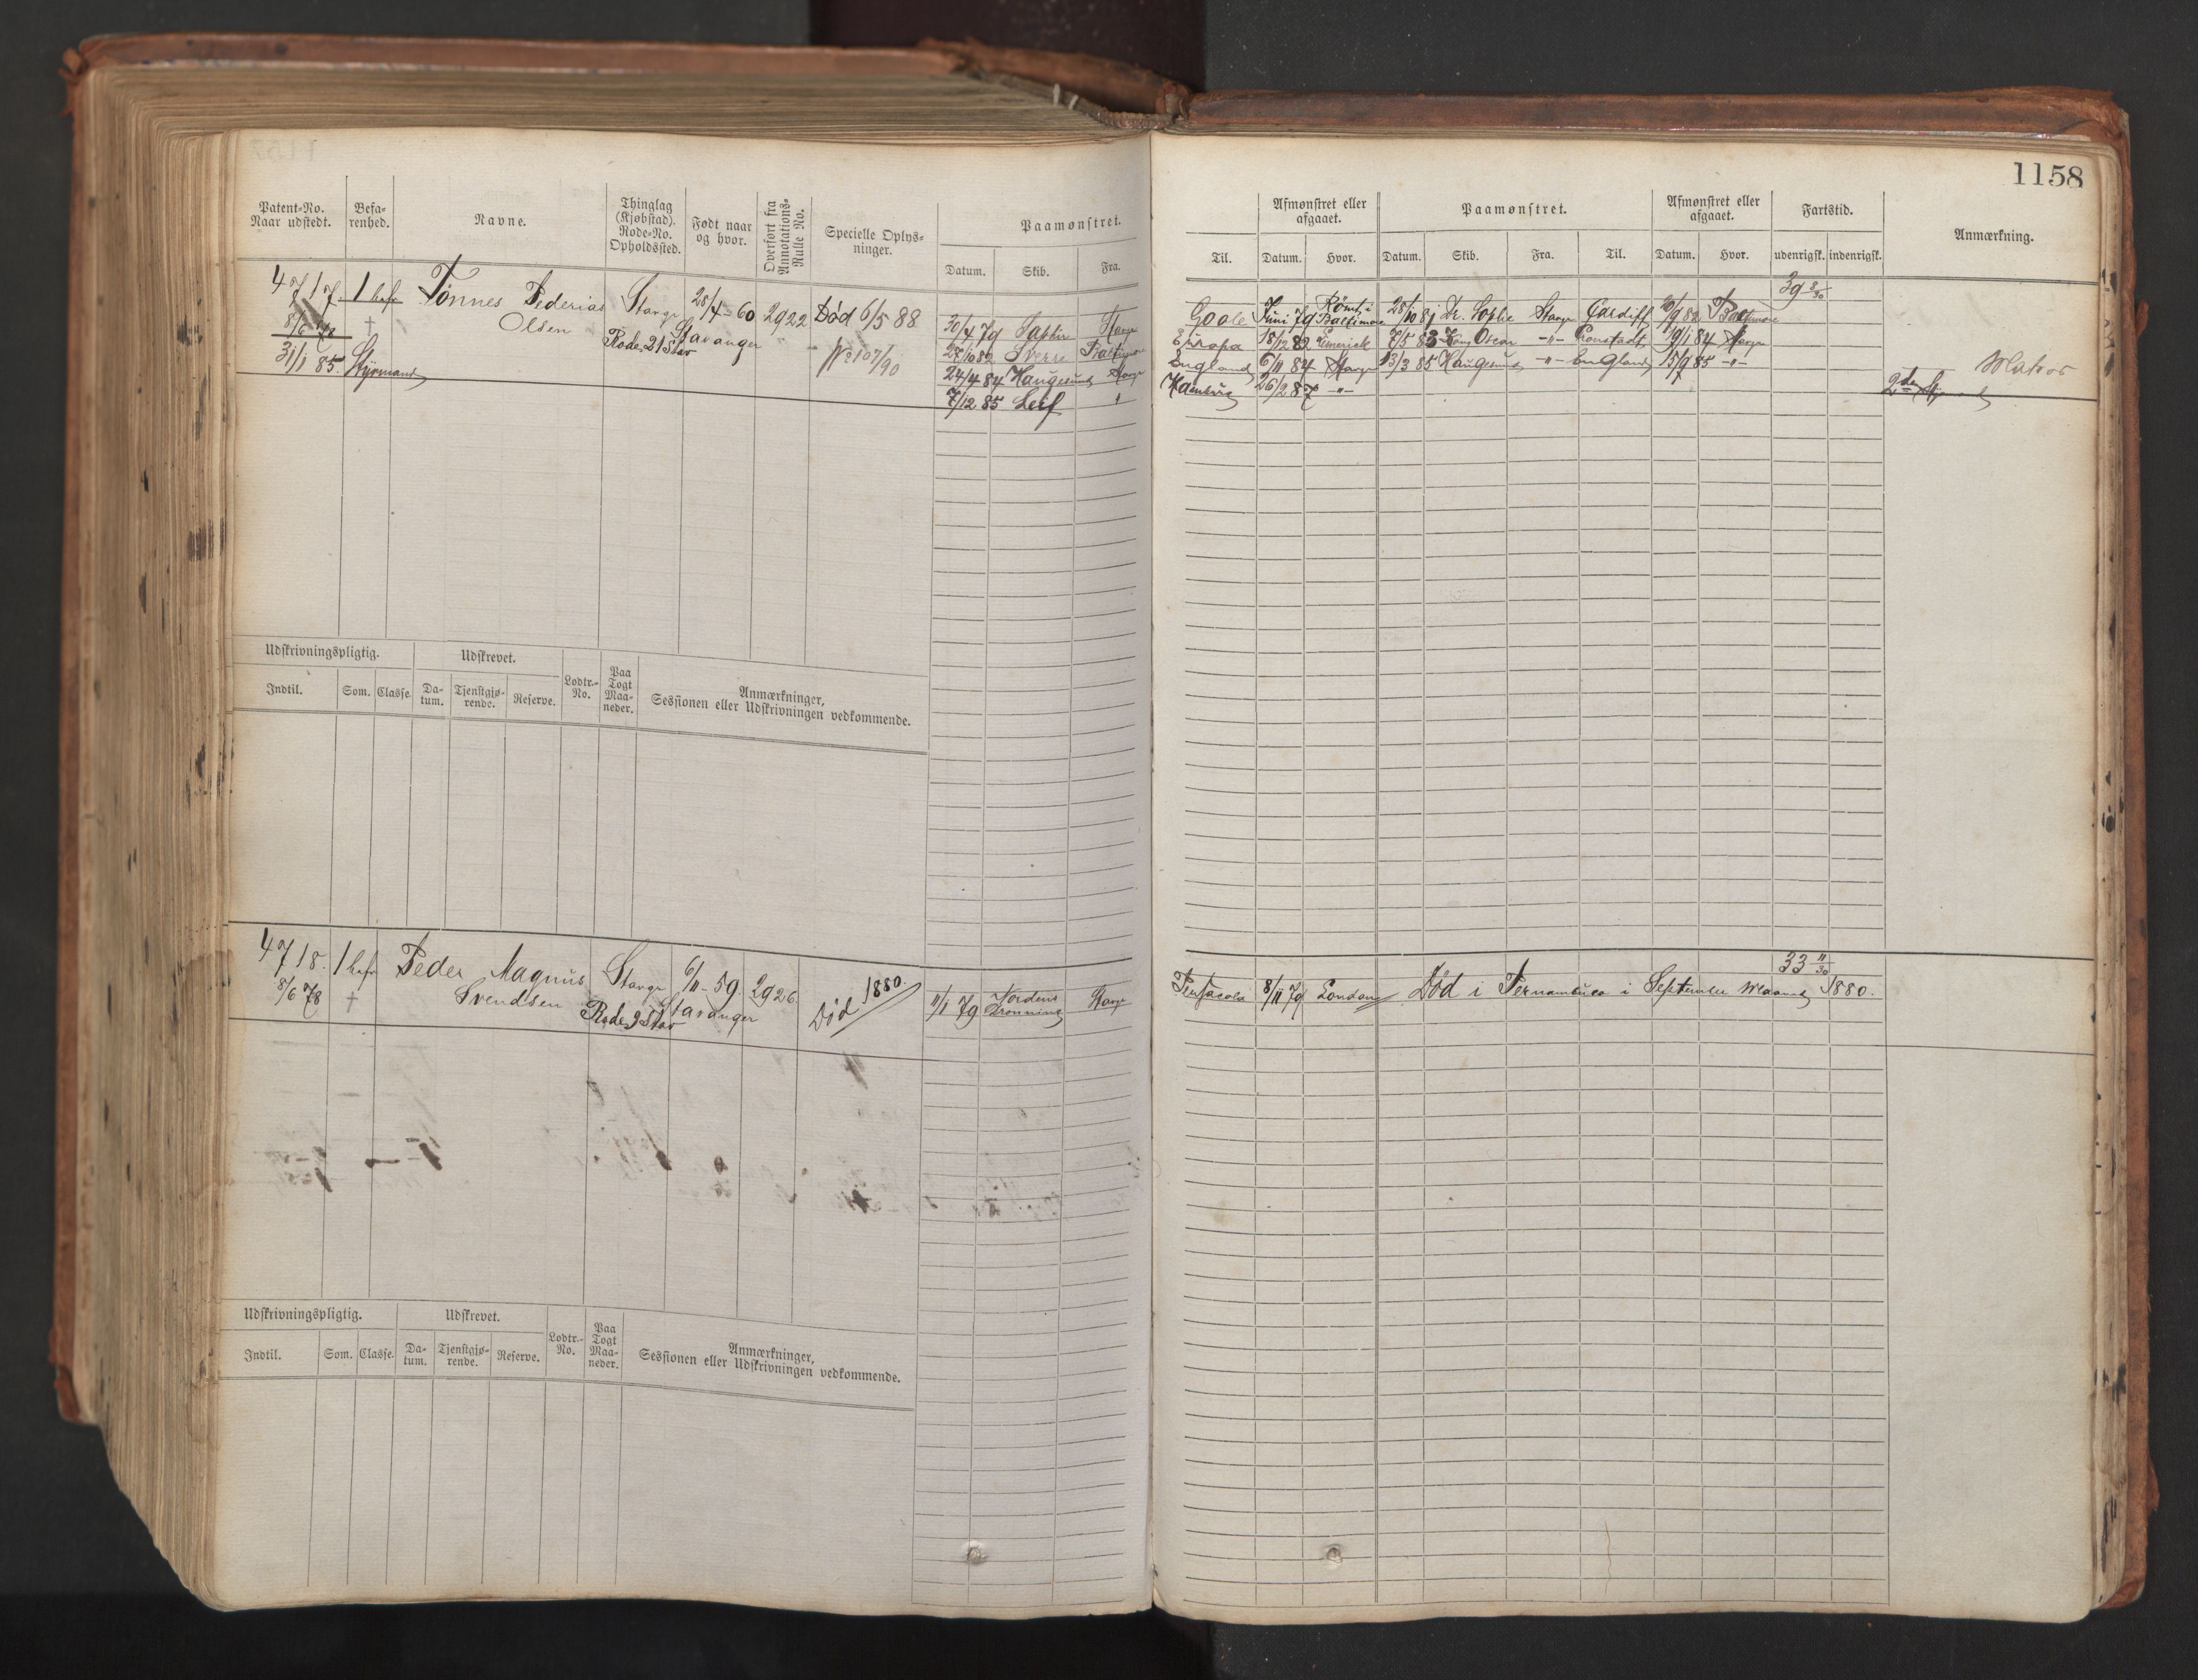 1158
Patent-No. Naar udstedt.
Befarenhed.
Navne.
Thinglag (Kjøbstad). Rode-No. Opholdssted.
Født naar og hvor.
Overført fra Annotations-Rulle No.
Specielle Oplysninger.
Paamønstret.
Datum. Skib. Fra.
Til.
Afmønstret eller afgaaet.
Datum. Hvor.
Paamønstret.
Datum. Skib. Fra. Til.
Afmønstret eller afgaaet.
Datum. Hvor.
Fartstid.
udenrigsk. indenrigsk.
Anmærkning.
4717 1 bef Tønnes Pederias Stavgr 28/4-60 2922 Død 6/5 88
39 8/30
8/6 78 † Olsen Rode 21 Stav Stavanger No 107/90
31/1 85 Styrmand
30/4 79 Stavgr Goole Juni 79 Rømt i Baltimore 28/10 81 Dr. Sophie Stavgr Cardiff 20/9 82 Baltimore
28/10 82 Sverre Baltimore Europa 18/12 82 Limerick 7/5 83 Kong Oscar -"- Cronstadt 19/1 84 Stavgr
24/4 84 Haugesund Stavgr England 6/11 84 Stavgr 13/3 85 Haugesund -"- England 15/9 85 -"-
Matros
7/12 85 Leif " Hamburg 26/2 87 -"-
2den Styrmand
Udskrivningspligtig. Udskrevet. Lodtr.-No. Paa Togt Maaneder. Anmærkninger, Sessionen eller Udskrivningen vedkommende.
Indtil. Som. Classe. Datum. Tjenstgjørende. Reserve.
4718. 1 bef Peder Magnus Stavgr 6/11-59. 2926. Død 1880.
33 11/30
8/6 78 † Svendsen Rode 9 Stav Stavanger
11/1 79 Nordens Dronning Stavgr Pensacola 8/11 79 London Død i Pernambuco i September Maaned 1880.
Udskrivningspligtig. Udskrevet. Lodtr.-No. Paa Togt Maaneder. Anmærkninger, Sessionen eller Udskrivningen vedkommende.
Indtil. Som. Classe. Datum. Tjenstgjørende. Reserve.